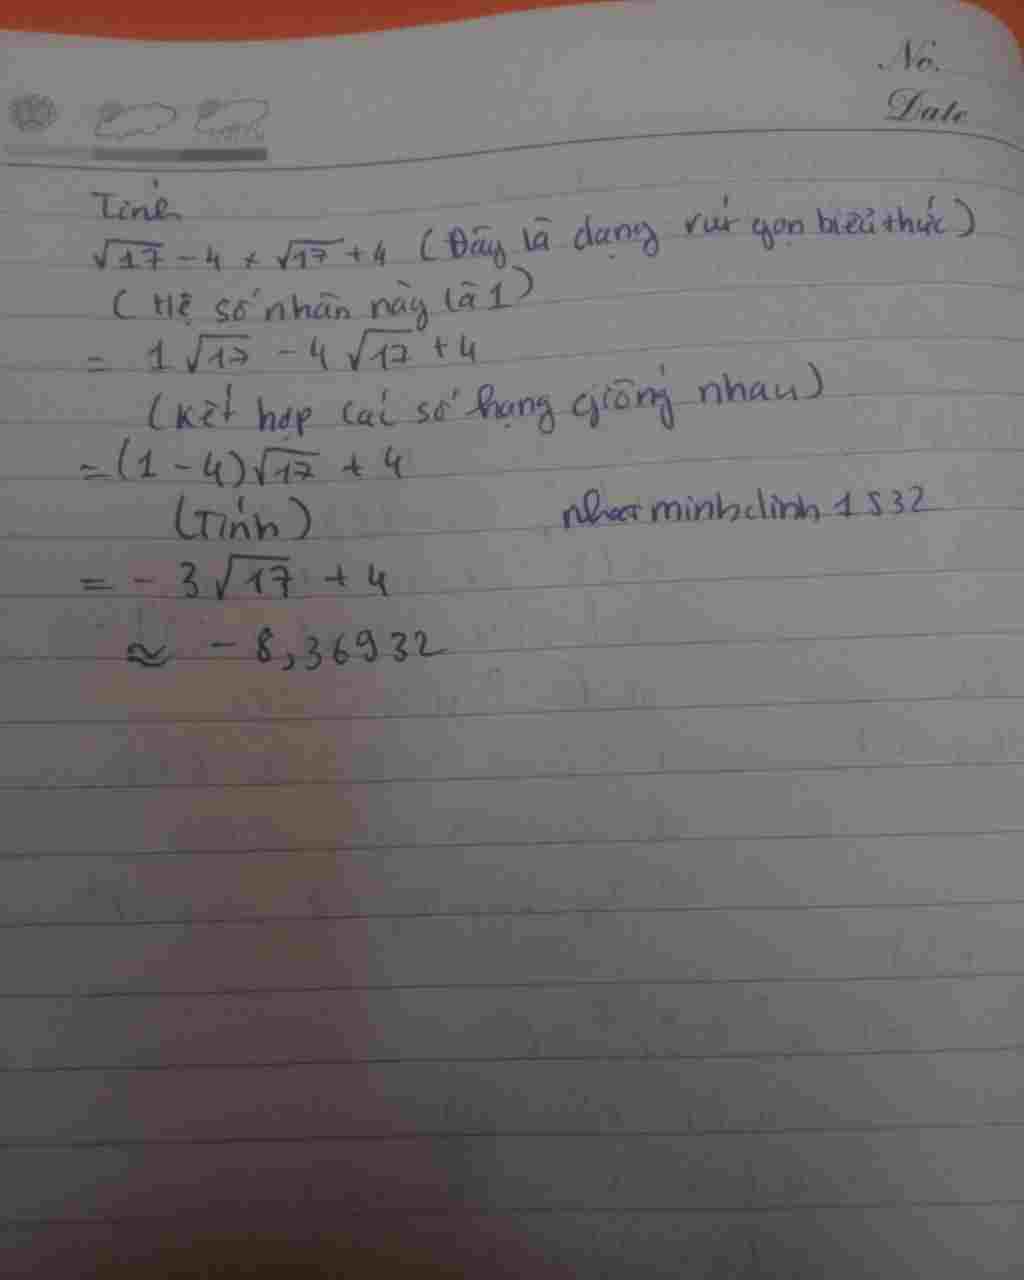 No.
Date
Tính
√17 - 4 × √17 + 4 (Đây là dạng rút gọn biểu thức)
(Hệ số nhân này là 1)
= 1√17 - 4√17 + 4
(Kết hợp các số hạng giống nhau)
= (1 - 4)√17 + 4
(Tính)
nhatminhdinh1532
= - 3√17 + 4
≈ - 8,36932